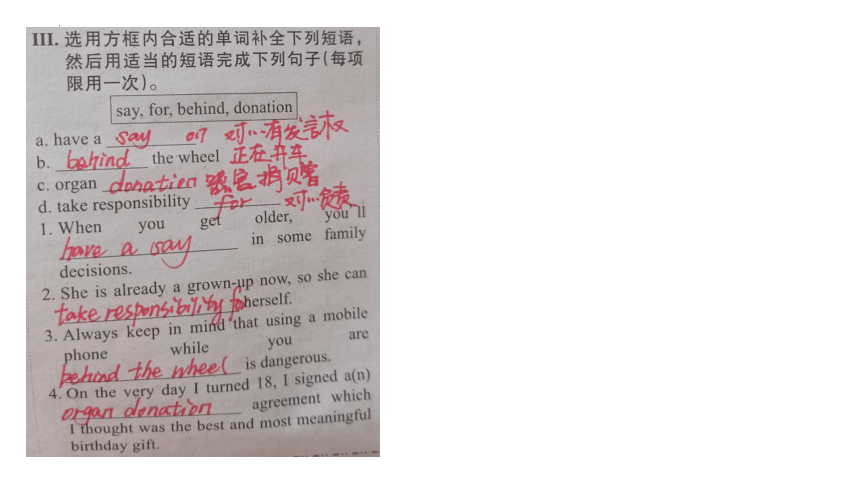 III. 选用方框内合适的单词补全下列短语，
然后用适当的短语完成下列句子(每项
限用一次)。
say, for, behind, donation
a. have a say on 对…有发言权
b. behind the wheel 正在开车
c. organ donation 器官捐贝害
d. take responsibility for 对…负责
1. When you get older, you'll
have a say in some family
decisions.
2. She is already a grown-up now, so she can
take responsibility for herself.
3. Always keep in mind that using a mobile
phone while you are
behind the wheel is dangerous.
4. On the very day I turned 18, I signed a(n)
organ donation agreement which
I thought was the best and most meaningful
birthday gift.